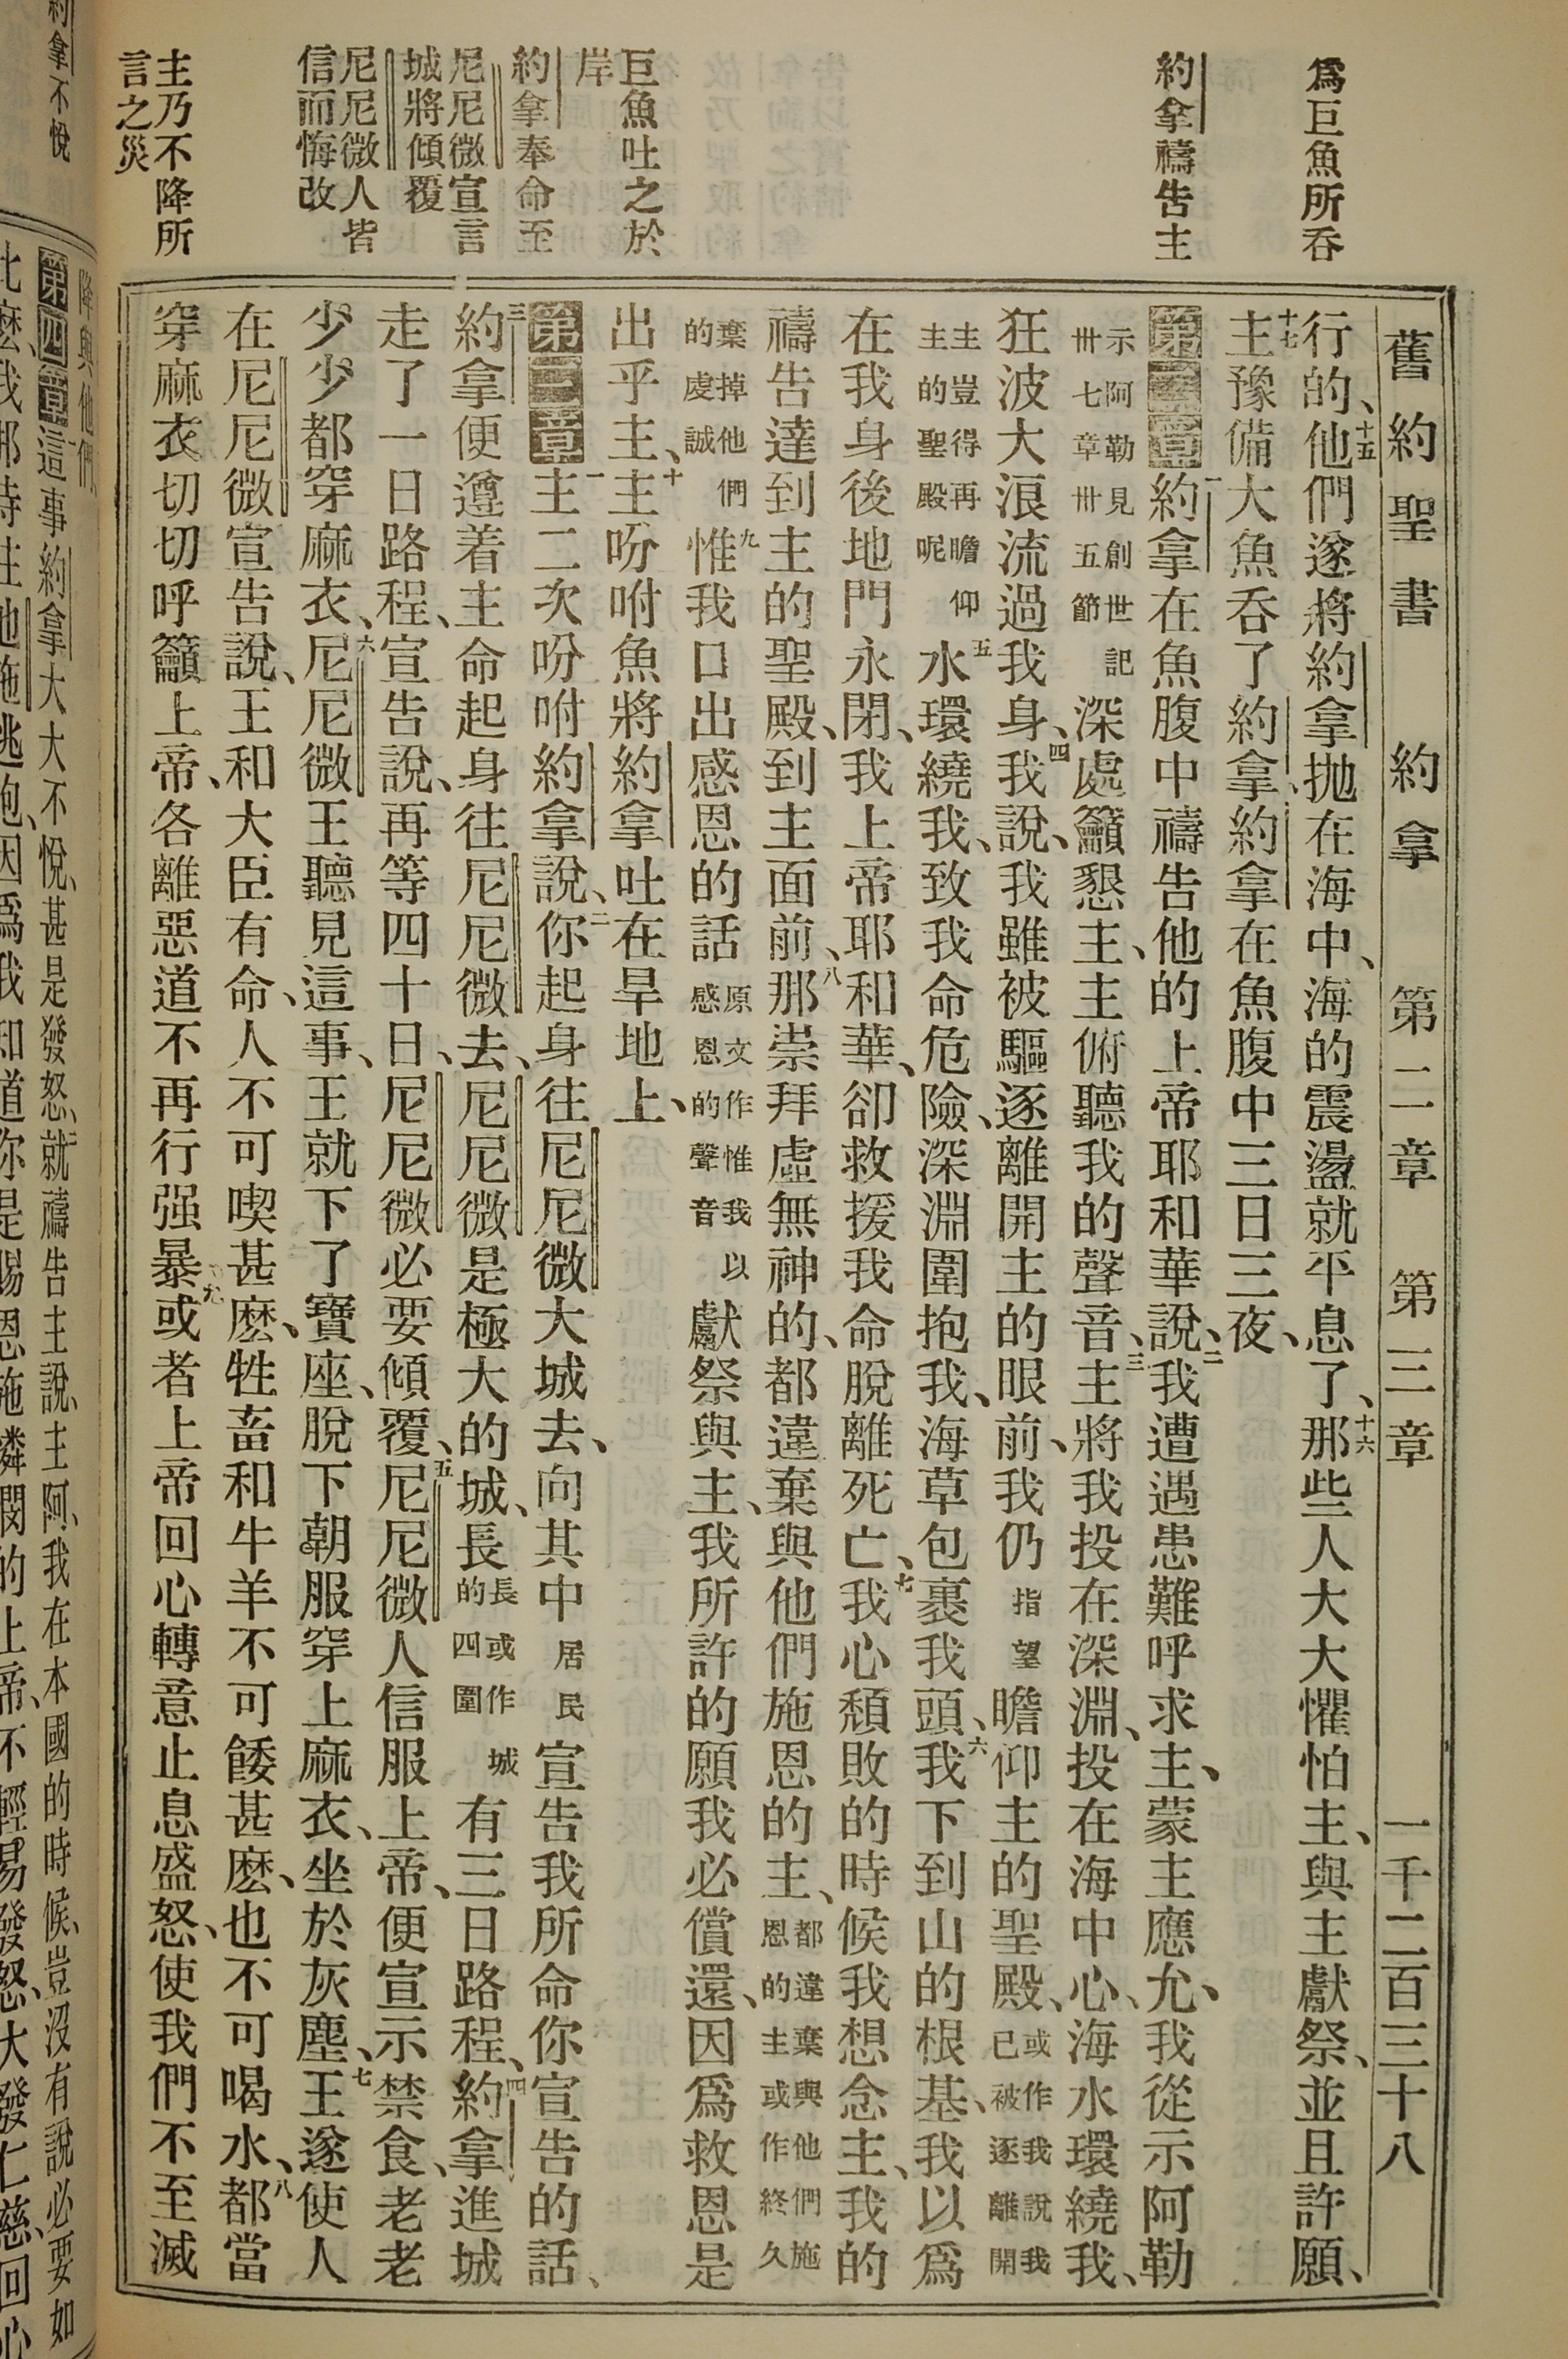 舊約聖書 約拿 第二章 第三章 一千二百三十八
爲巨魚所吞
約拿禱告主
巨魚吐之於
岸
約拿奉命至
尼尼微宣言
城將傾覆
尼尼微人皆
信而悔改
主乃不降所
言之災
行的、十五他們遂將約拿抛在海中、海的震盪就平息了、十六那些人大大懼怕主、與主獻祭、並且許願、
十七主豫備大魚吞了約拿、約拿在魚腹中三日三夜、
第二章一約拿在魚腹中禱告他的上帝耶和華說、二我遭遇患難呼求主、蒙主應允、我從示阿勒
示阿勒見創世記
卅七章卅五節
深處籲懇主、主俯聽我的聲音、三主將我投在深淵、投在海中心、海水環繞我、
狂波大浪流過我身、四我說、我雖被驅逐離開主的眼前、我仍指望瞻仰主的聖殿、或作我說我
已被逐離開
主豈得再瞻仰
主的聖殿呢
五水環繞我、致我命危險、深淵圍抱我、海草包裹我頭、六我下到山的根基、我以爲
在我身後地門永閉、我上帝耶和華、卻救援我命脫離死亡、七我心頹敗的時候我想念主、我的
禱告達到主的聖殿、到主面前、八那崇拜虛無神的、都違棄與他們施恩的主、都違棄與他們施
恩的主或作終久
棄掉他們
的虔誠
九惟我口出感恩的話原文作惟我以
感恩的聲音
獻祭與主、我所許的願我必償還、因爲救恩是
出乎主、十主吩咐魚將約拿吐在旱地上、
第三章一主二次吩咐約拿說、二你起身往尼尼微大城去、向其中居民宣告我所命你宣告的話、
三約拿便遵着主命起身往尼尼微去、尼尼微是極大的城、長長或作城
的四圍
有三日路程、四約拿進城
走了一日路程、宣告說、再等四十日、尼尼微必要傾覆、五尼尼微人信服上帝、便宣示禁食、老老
少少都穿麻衣、六尼尼微王聽見這事、王就下了寶座、脫下朝服穿上麻衣、坐於灰塵、七王遂使人
在尼尼微宣告說、王和大臣有命、人不可喫甚麽、牲畜和牛羊不可餧甚麽、也不可喝水、八都當
穿麻衣切切呼籲上帝、各離惡道不再行强暴九或者上帝回心轉意止息盛怒、使我們不至滅
約拿不悅
降與他們、
第四章一這事約拿大大不悅、甚是發怒、二就禱告主說、主阿、我在本國的時候、豈沒有說必要如